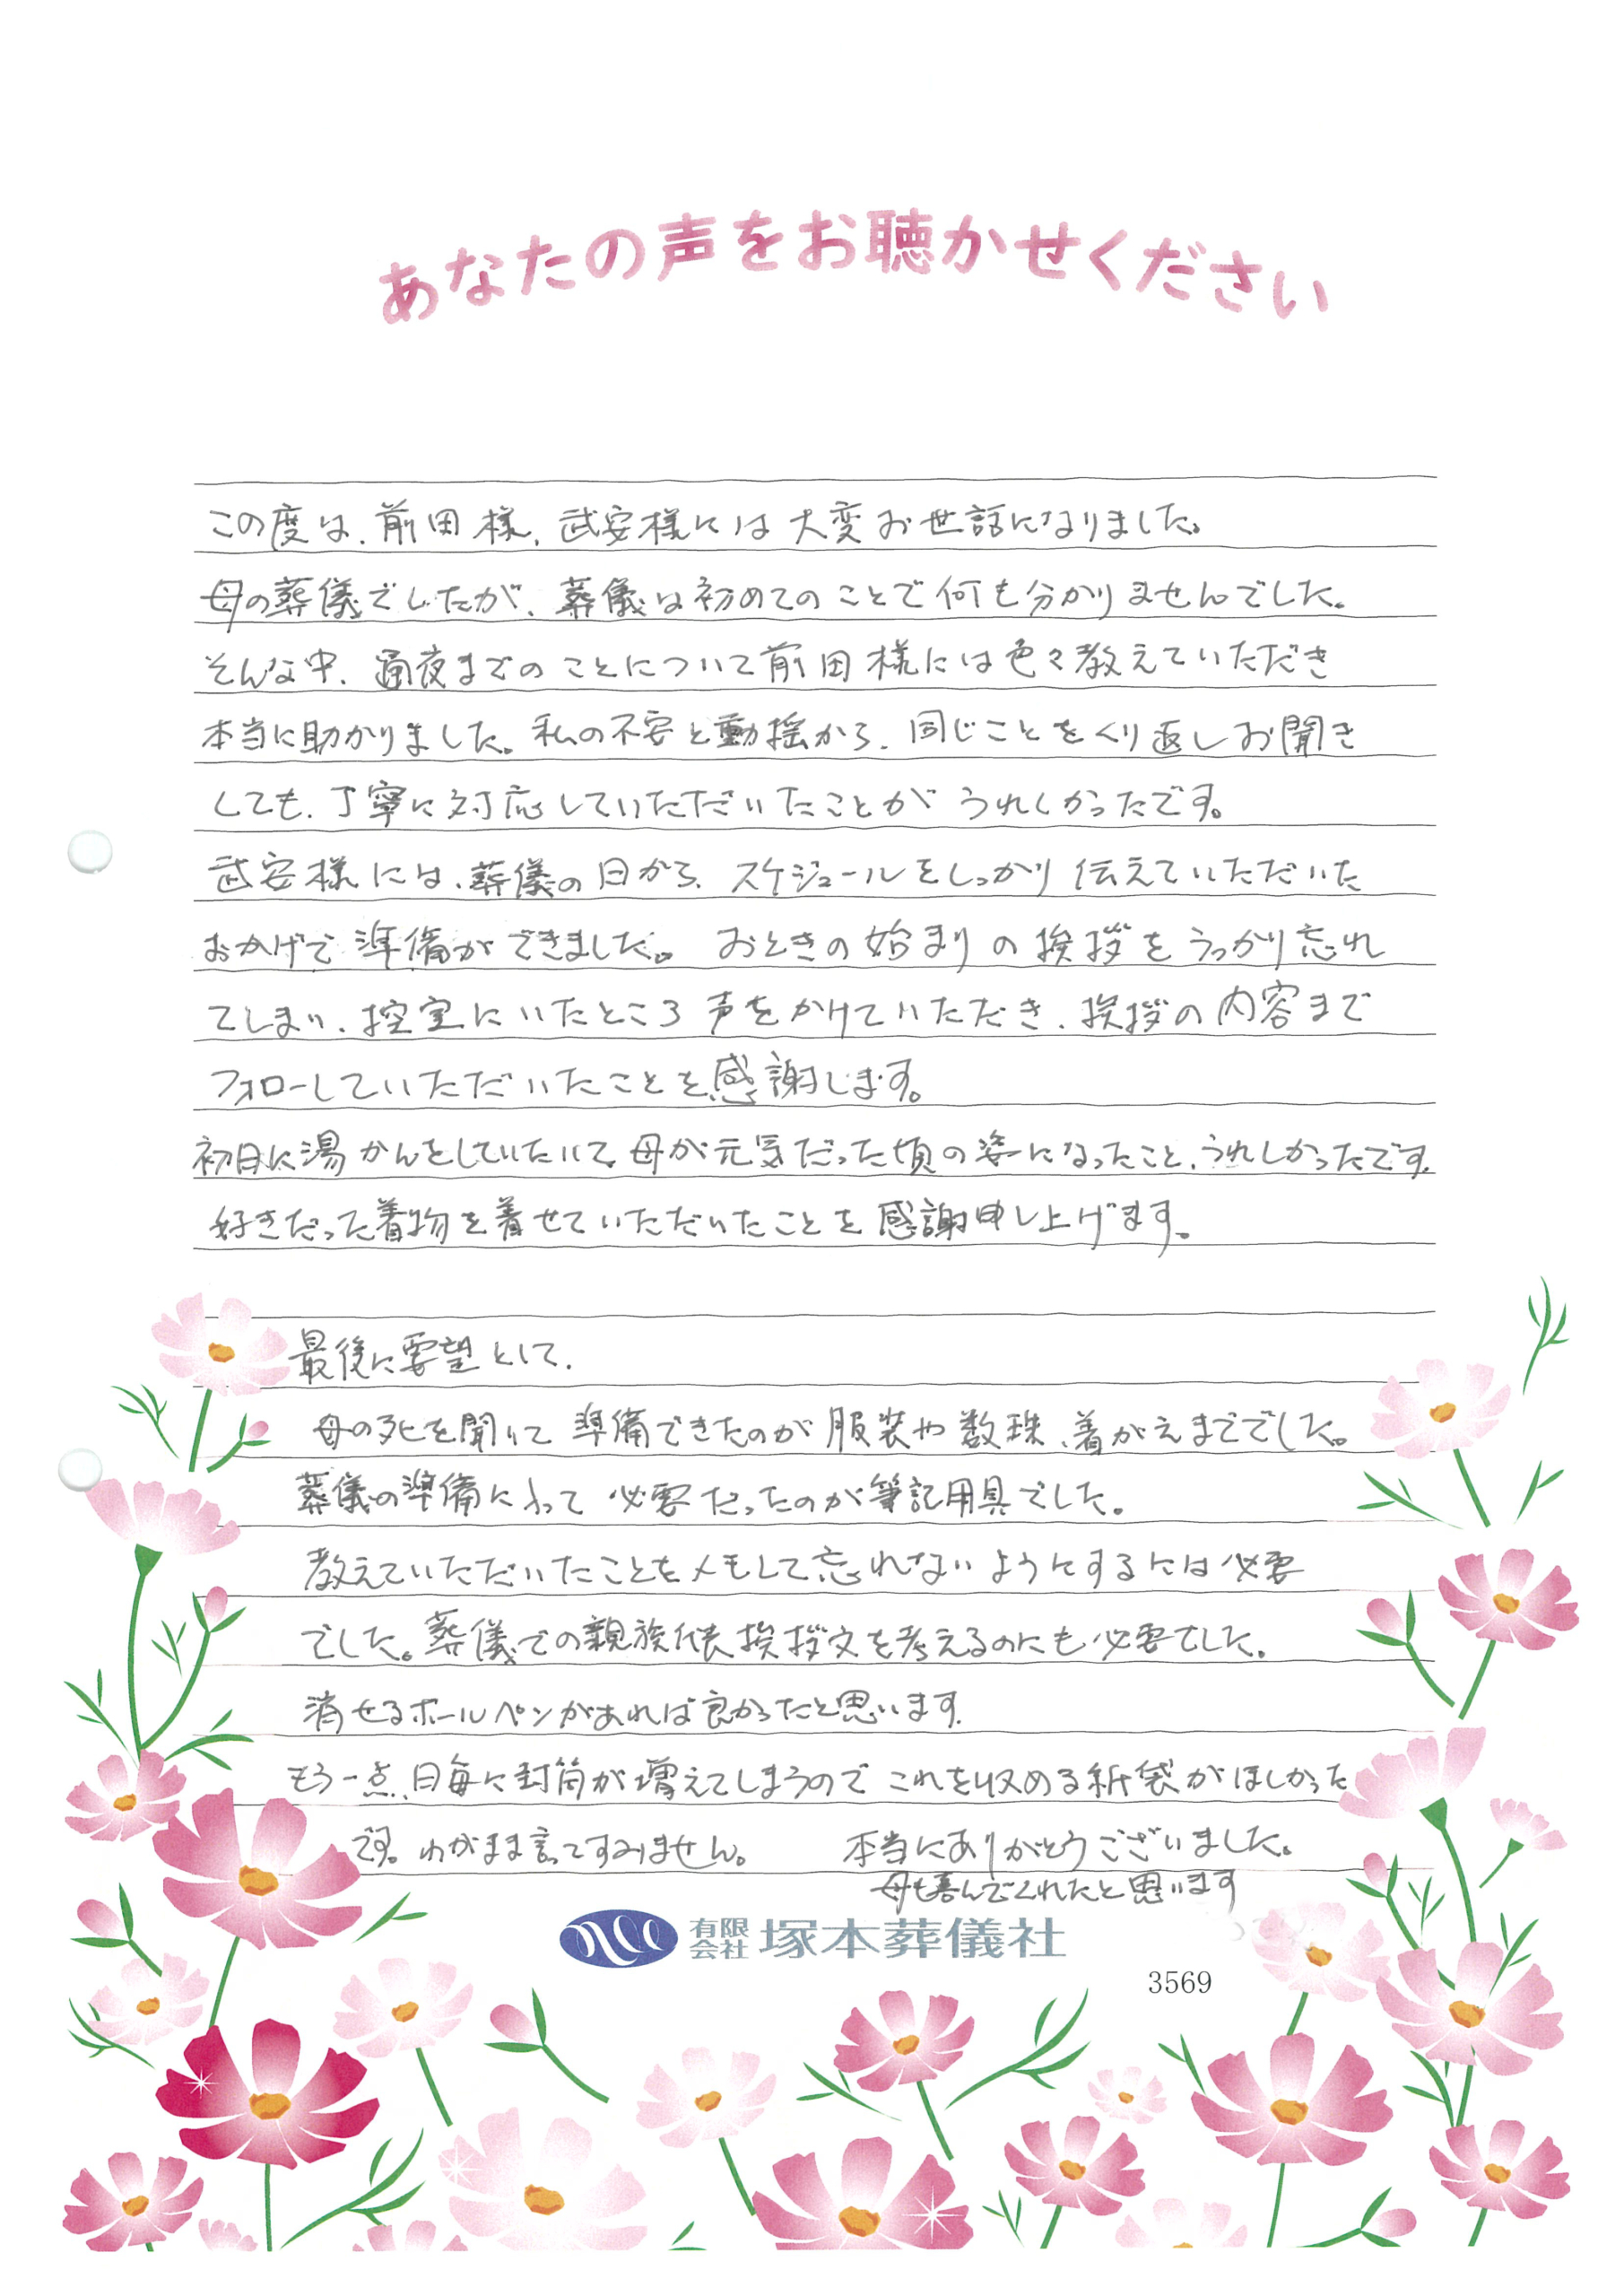 あなたの声をお聴かせください
この度は、前田様、武安様には大変お世話になりました。
母の葬儀でしたが、葬儀は初めてのことで何も分かりませんでした。
そんな中、通夜までのことについて前田様には色々教えていただき
本当に助かりました。私の不安と動揺から、同じことをくり返しお聞き
しても、丁寧に対応していただいたことがうれしかったです。
武安様には、葬儀の日から、スケジュールをしっかり伝えていただいた
おかげで準備ができました。おときの始まりの挨拶をうっかり忘れ
てしまい、控室にいたところ声をかけていただき、挨拶の内容まで
フォローしていただいたことを感謝します。
初日に湯かんをしていたいて、母が元気だった頃の姿になったこと、うれしかったです。
好きだった着物を着せていただいたことを感謝申し上げます。
最後に要望として、
母の死を聞いて準備できたのが服装や数珠、着がえまででした。
葬儀の準備によって必要だったのが筆記用具でした。
教えていただいたことをメモして忘れないようにするには必要
でした。葬儀での親族代表挨拶文を考えるのにも必要でした。
消せるボールペンがあれば良かったと思います。
もう一点、日毎に封筒が増えてしまうのでこれを収める紙袋がほしかった
です。わがまま言ってすみません。 本当にありがとうございました。
母も喜んでくれたと思います
有限会社 塚本葬儀社
3569